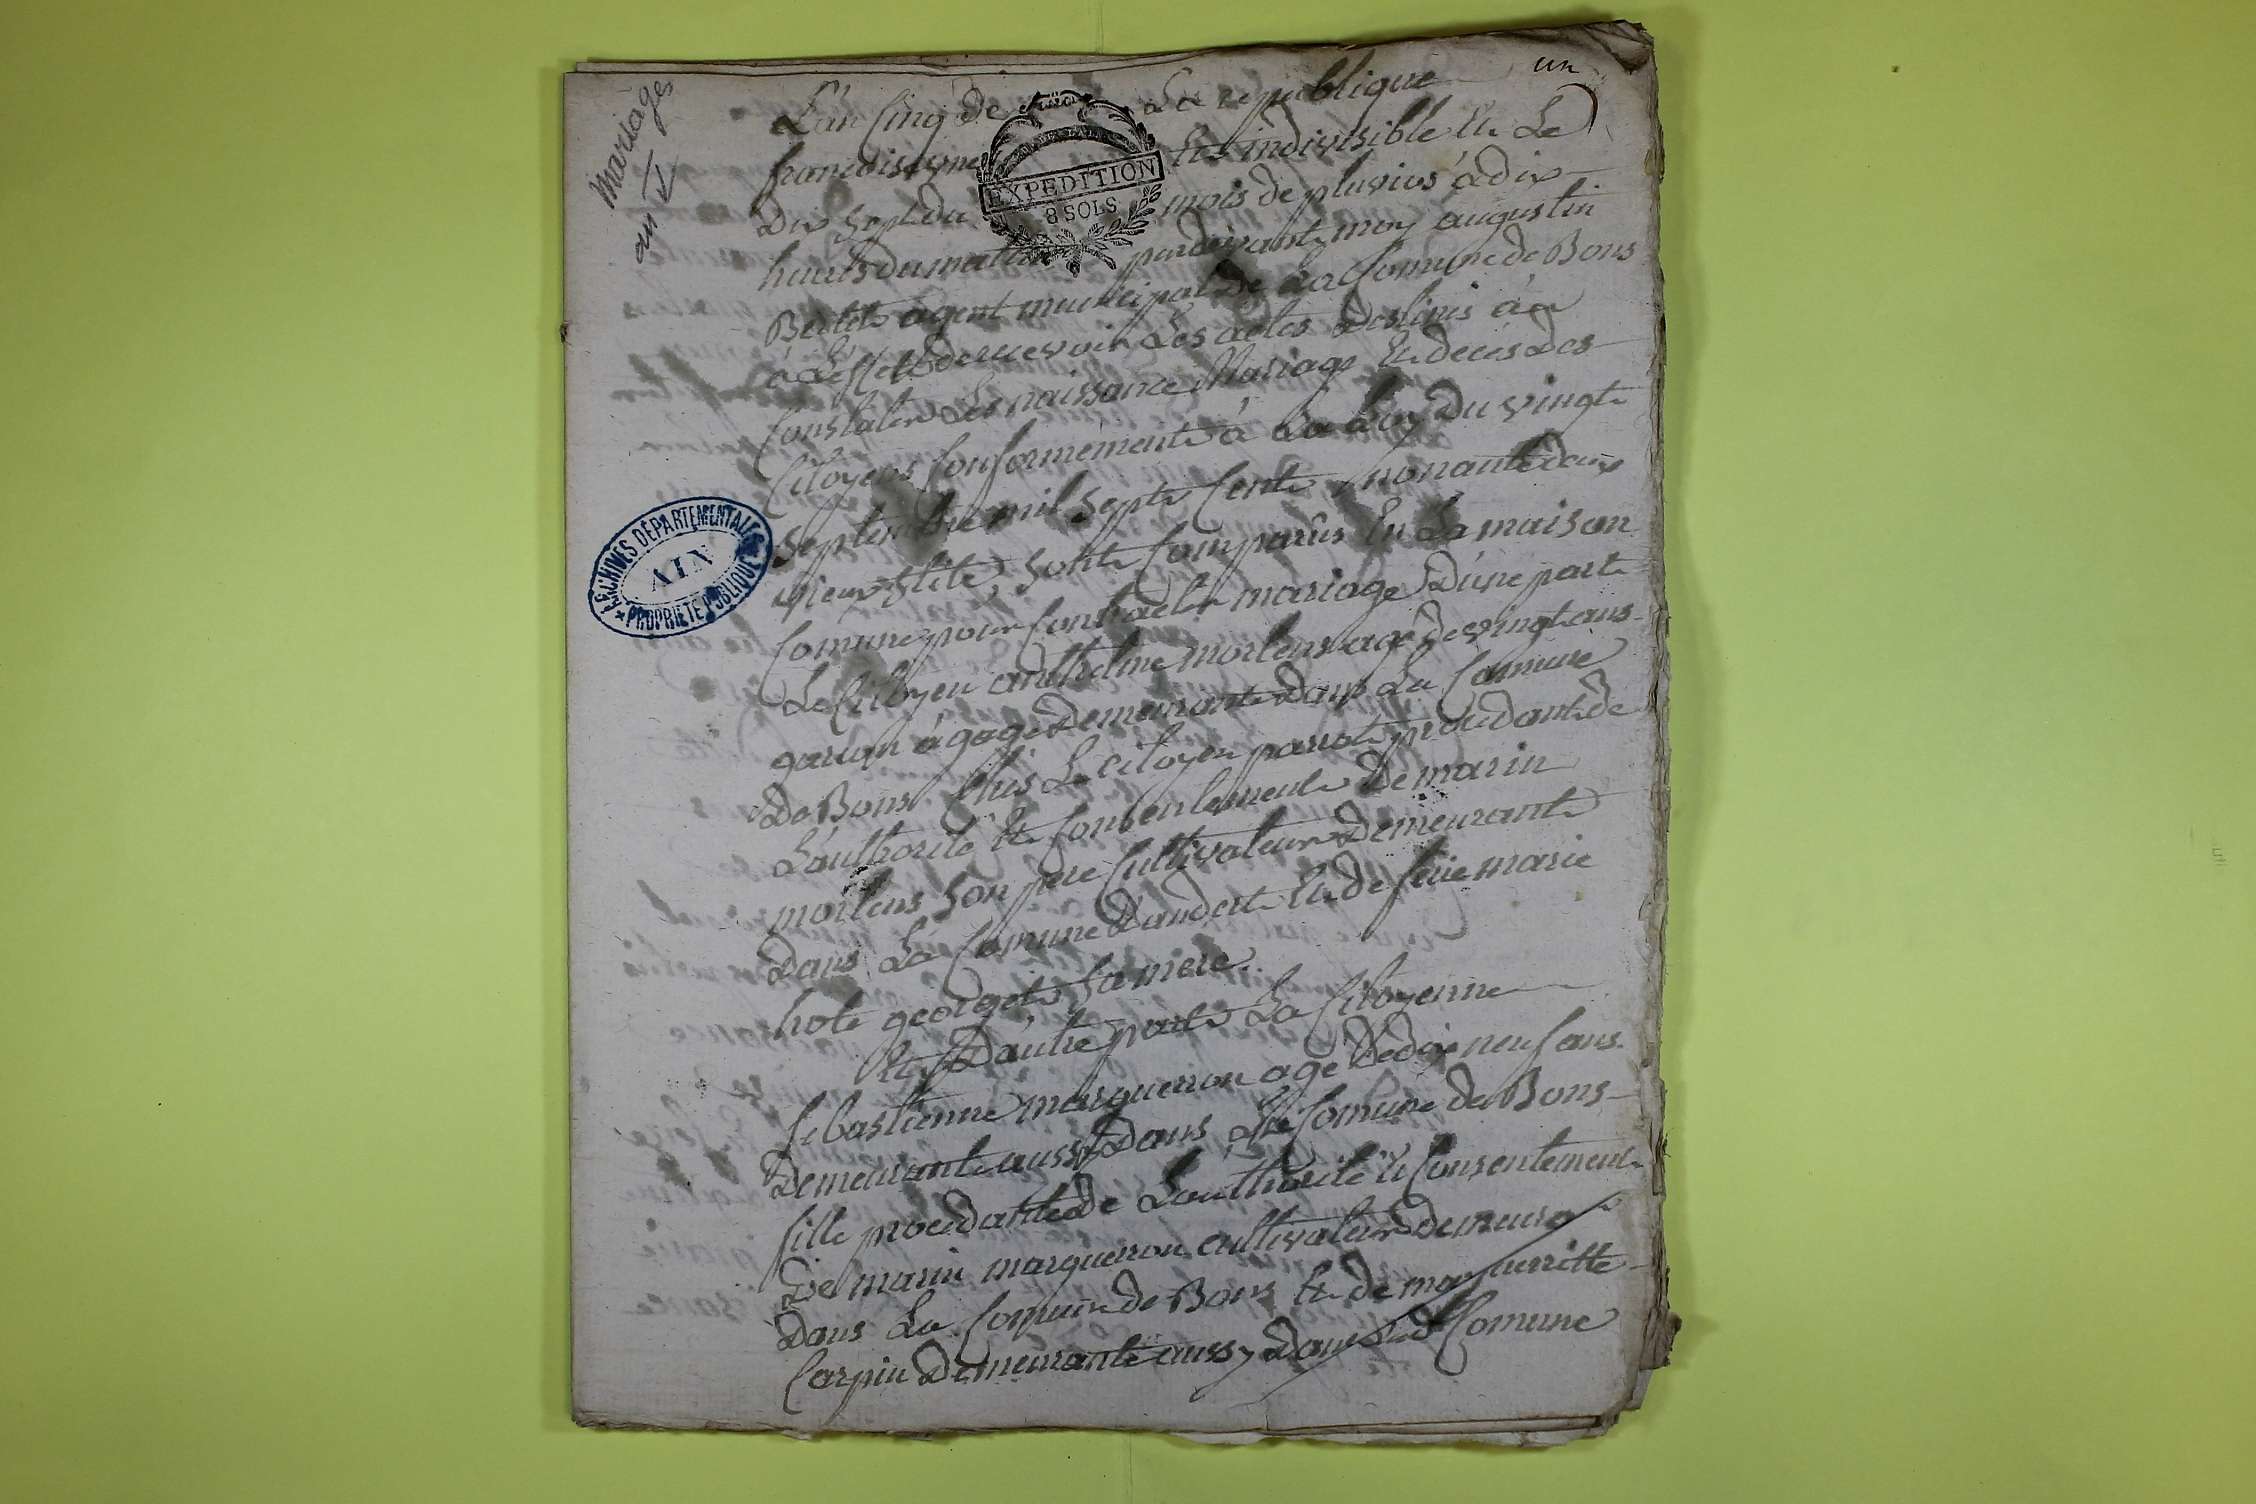 un
Mariages
an V
L'an Cinq de La republique
francoise une Et indivisible Et Le
Dix Sept du mois de pluvios à dix
heures du matin pardevant moy augustin
Bertet agent municipal de La Comune de Bons
à L'effet de recevoir Les actes destinés à
Constater Les naissance Mariage Et decés des
Citoyens Conformement à La Loy du vingt
Septembre mil Sept Cent nonante deux
vieux Stile, Sont Comparûs En La maison
Comune pour Contracter mariage D'une part
Le Citoyen anthelme morlens agé de vingt ans
garçon à gage Demeurant Dans La Comune
De Bons Chés Le citoyen parrot procedant de
L'authorité Et Consentement De marin
morlens Son pere Cultivateur Demeurant
Dans La Comune D'andert Et de feüe marie
georget Sa mere.
Et D'autre part La Citoyenne
Sebastienne marqueron agé De dix neuf ans
Demeurant aussy Dans La Comune de Bons
fille procedante de L'authorité Et Consentement
De marin marqueron cultivateur Demeurant
Dans La Comune de Bons Et de marguerritte
Carpin Demeurante aussy Dans Lad Comune
EXPEDITION
8 SOLS
ARCHIVES DÉPARTEMENTALES
AIN
PROPRIÉTÉ PUBLIQUE